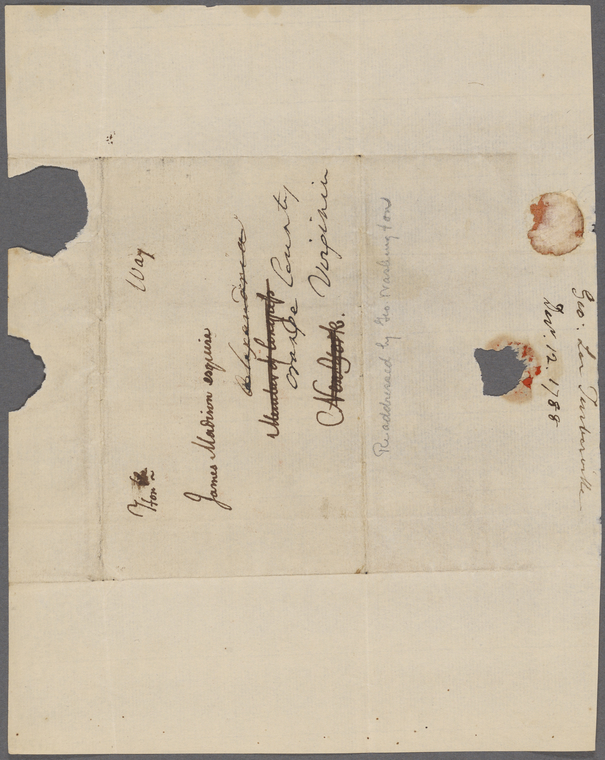 Way
Hon
James Madison esquire
Alexandria
Member of Congress
Orange County
New York.
Virginia
Readdressed by Geo Washington
Geo: Lee Turberville
Nov. 12. 1788